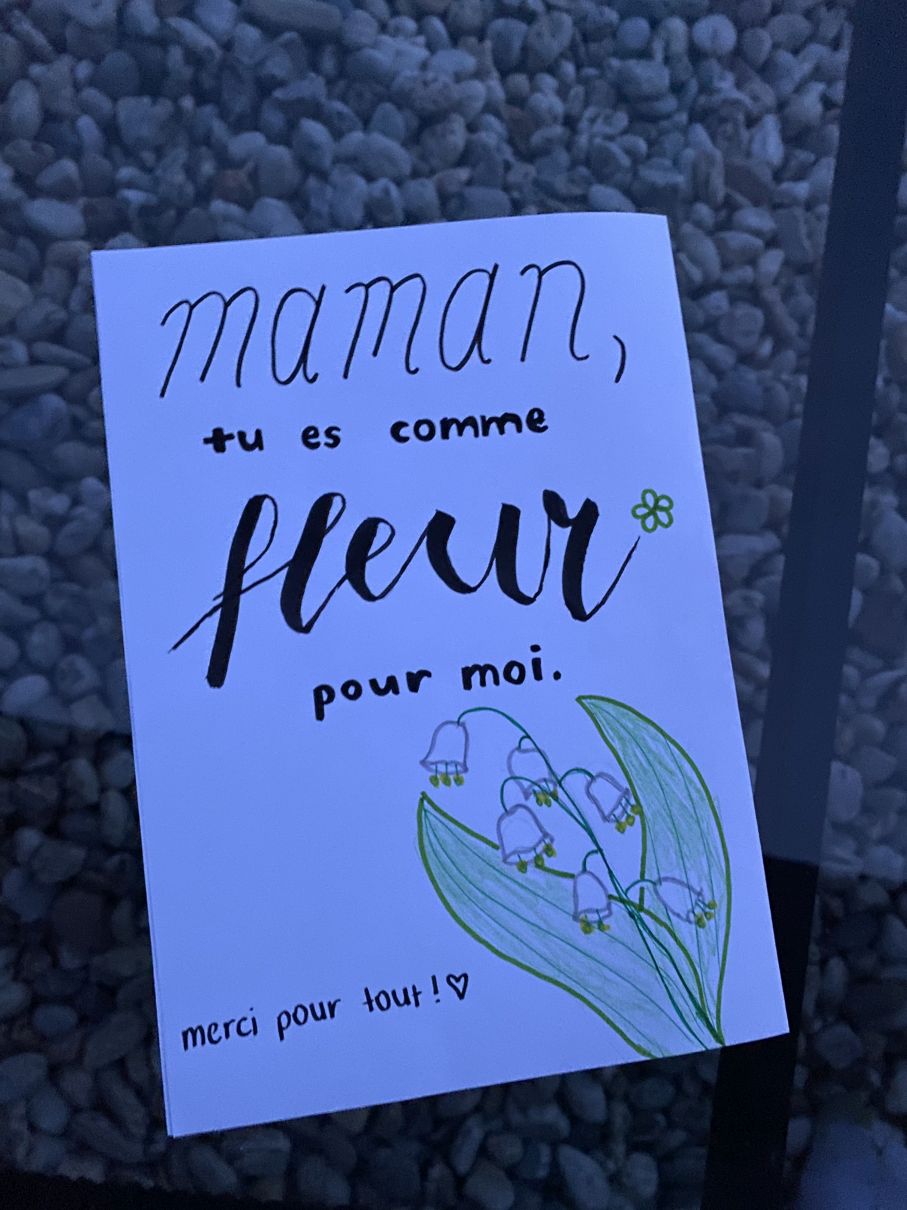 maman,
tu es comme
fleur
pour moi.
merci pour tout!♡